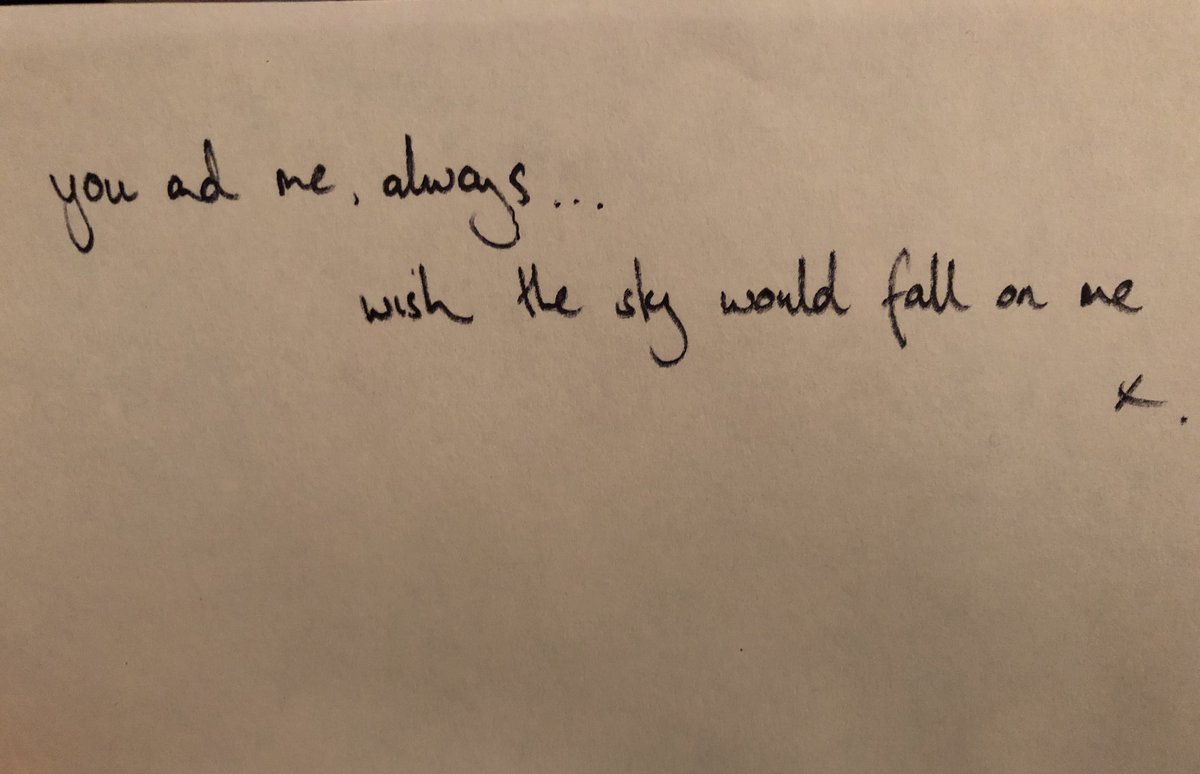 you and me, always...
wish the sky would fall on me
x.